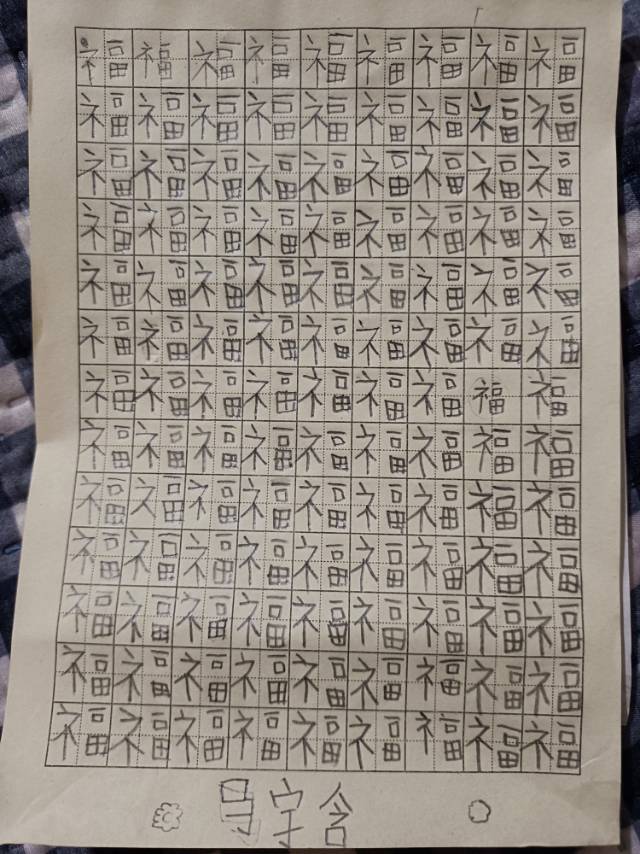 福福福福福福福福福
福福福福福福福福福
福福福福福福福福福
福福福福福福福福福
福福福福福福福福福
福福福福福福福福福
福福福福福福福福福
福福福福福福福福福
福福福福福福福福福
福福福福福福福福福
福福福福福福福福福
福福福福福福福福福
福福福福福福福福福